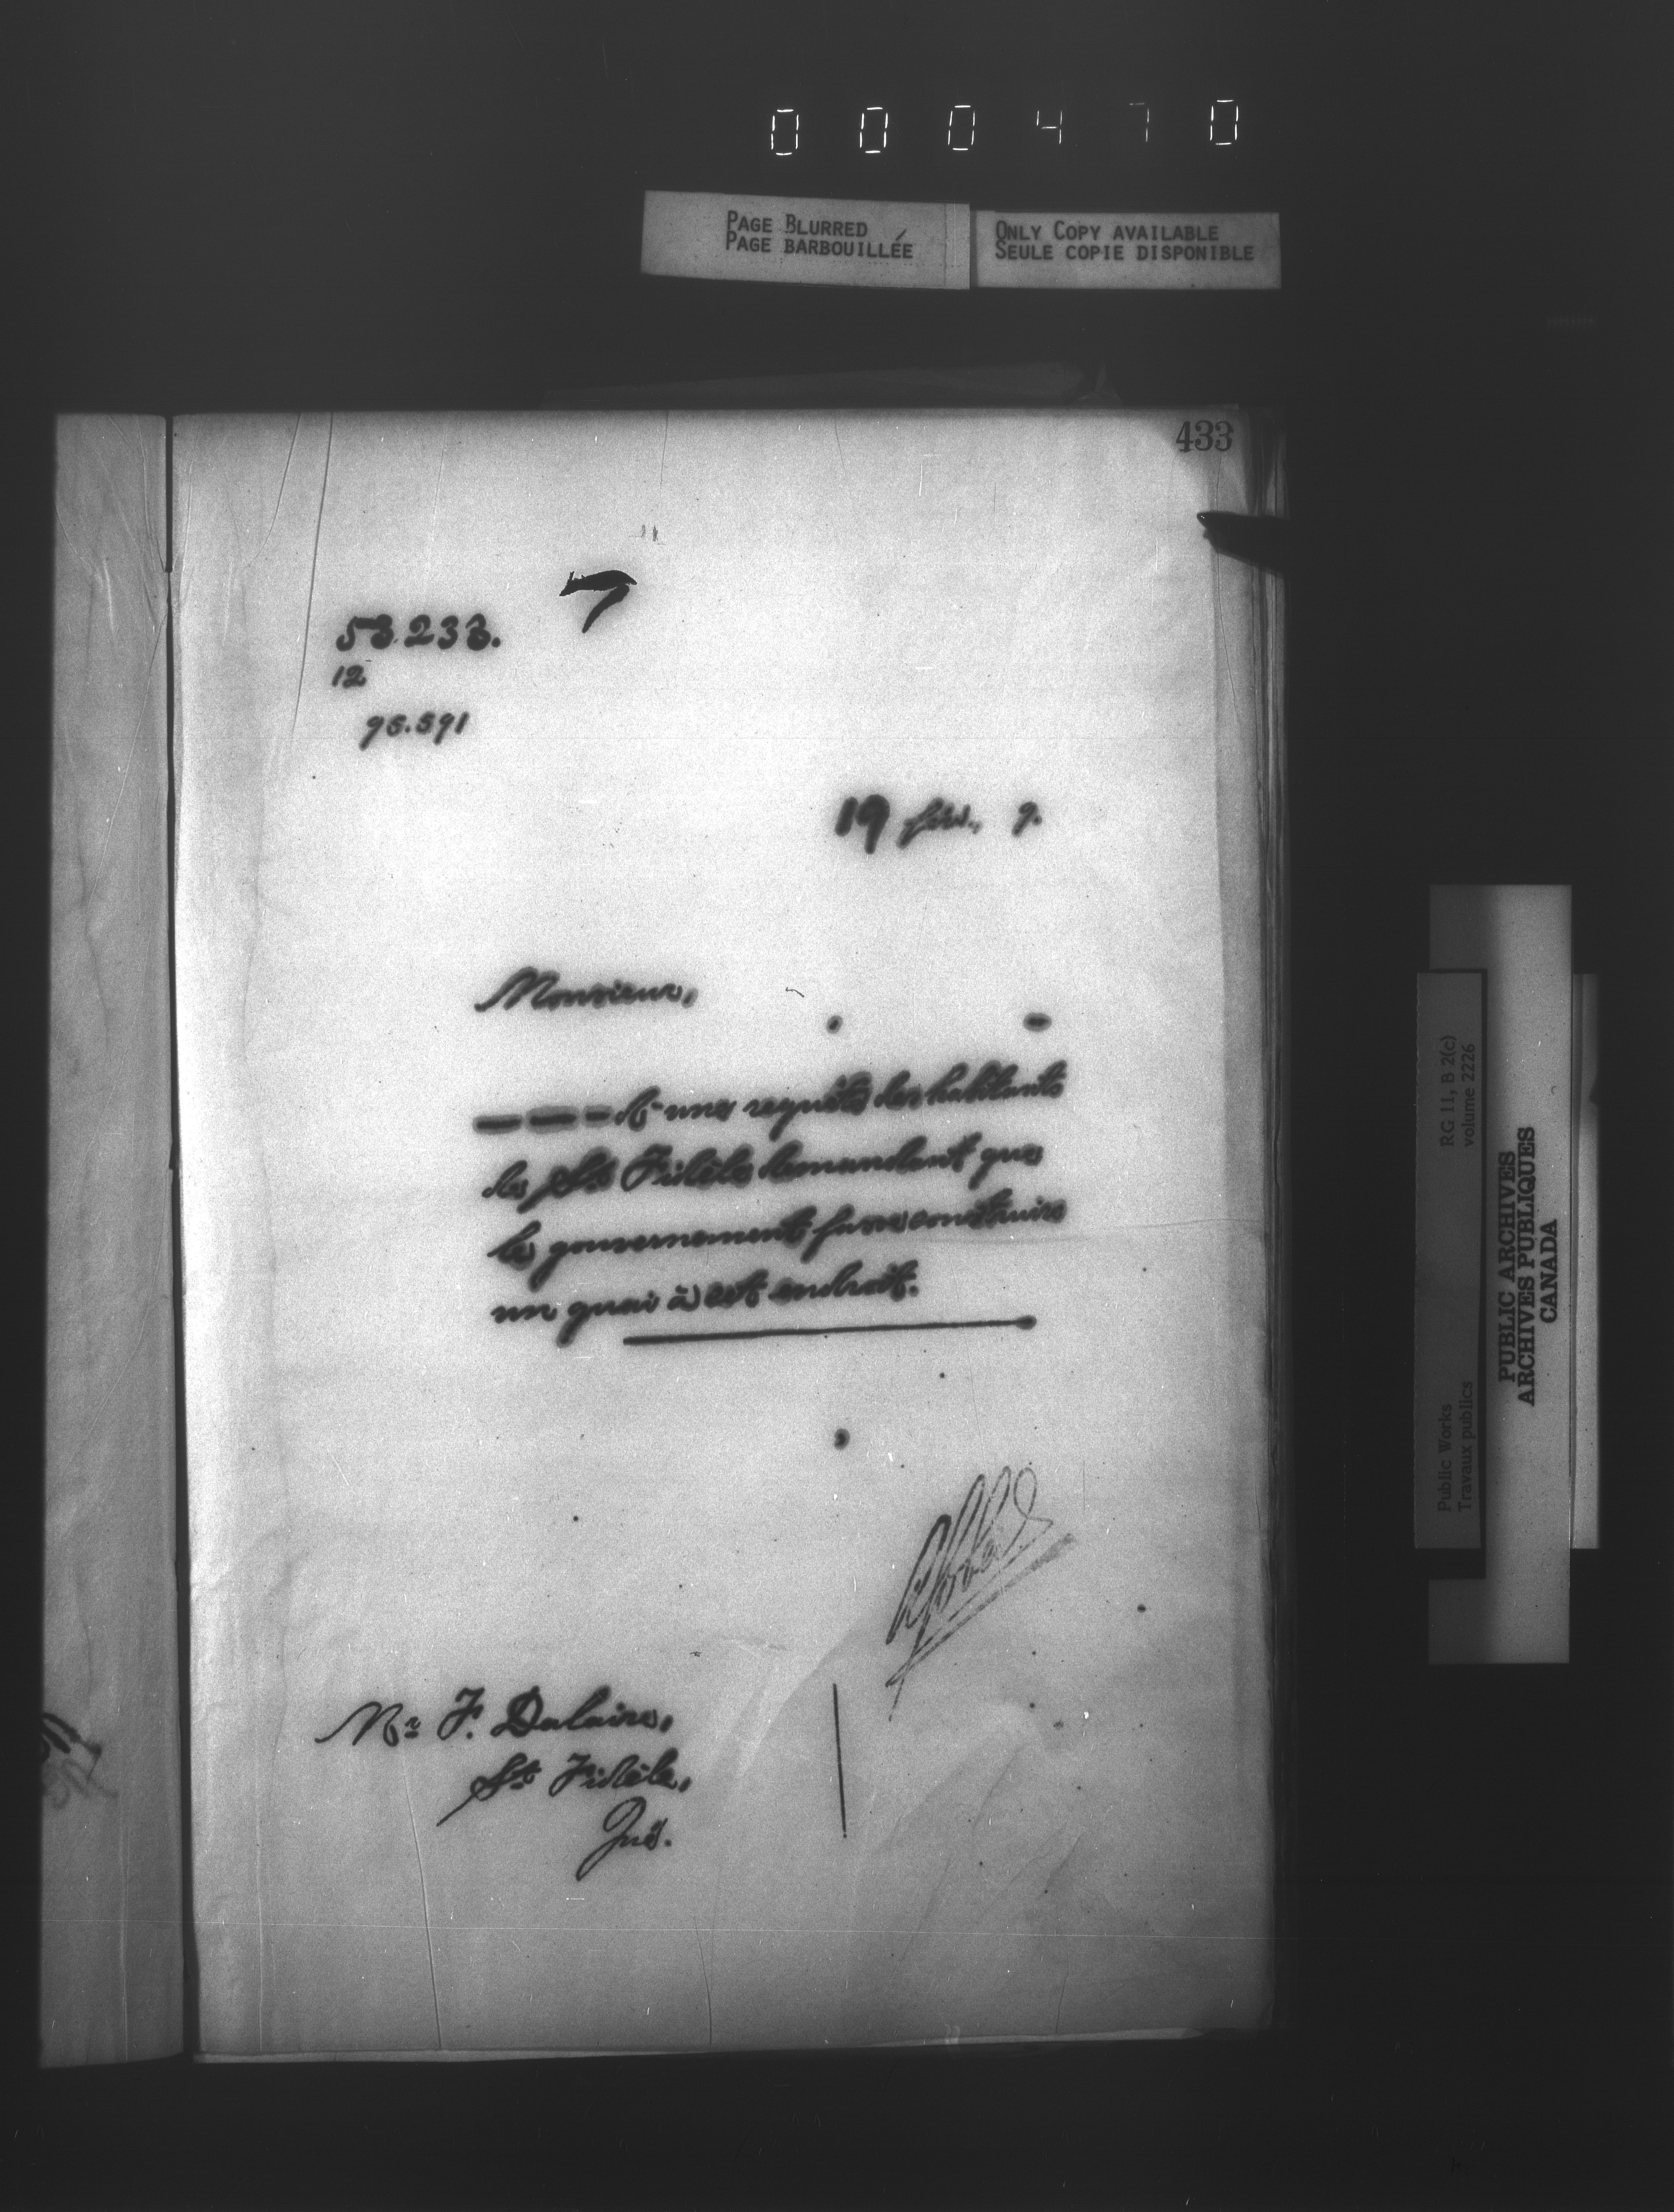 000470
PAGE BLURRED
PAGE BARBOUILLÉE
ONLY COPY AVAILABLE
SEULE COPIE DISPONIBLE
433
53.233.
12
95.591
19 fév., 9.
Monsieur,
d'une requête des habitants
de St. Fidèle demandant que
le gouvernement fasse construire
un quai à cet endroit.
Mr. F. Dalaire,
St. Fidèle,
Qué.
RG 11, B 2(c)
volume 2226
Public Works
Travaux publics
PUBLIC ARCHIVES
ARCHIVES PUBLIQUES
CANADA